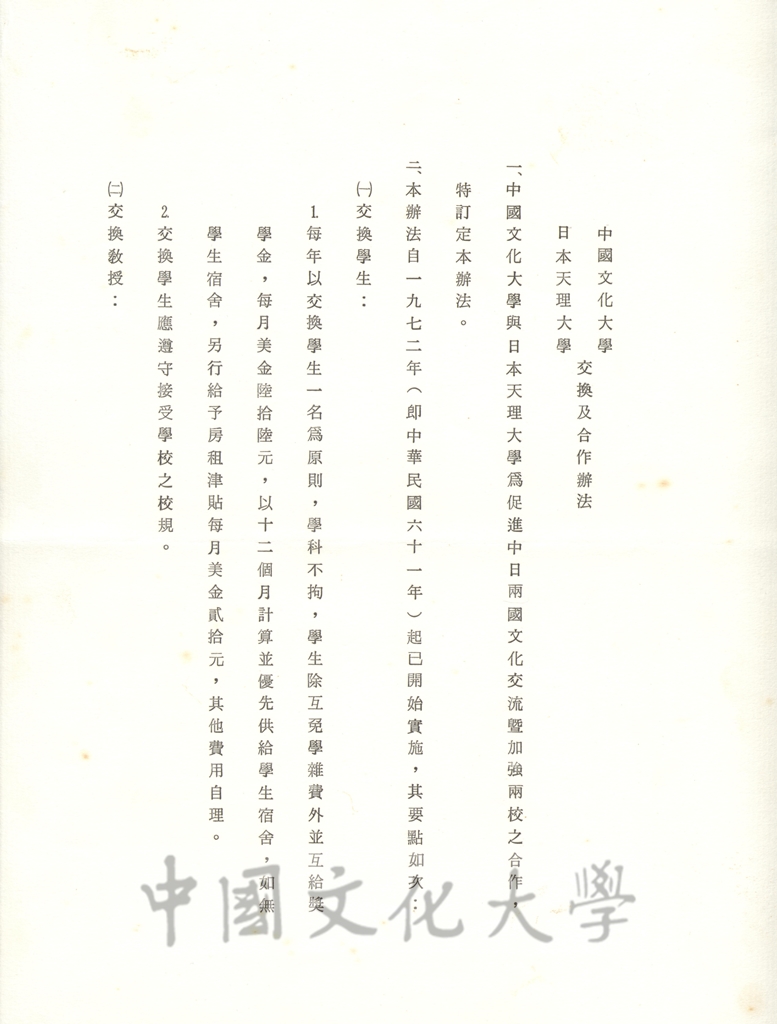 中國文化大學
日本天理大學
交換及合作辦法
一、中國文化大學與日本天理大學為促進中日兩國文化交流暨加強兩校之合作，
特訂定本辦法。
二、本辦法自一九七二年（即中華民國六十一年）起已開始實施，其要點如次：
㈠交換學生：
1.每年以交換學生一名爲原則，學科不拘，學生除互免學雜費外並互給獎
學金，每月美金陸拾陸元，以十二個月計算並優先供給學生宿舍，如無
學生宿舍，另行給予房租津貼每月美金貳拾元，其他費用自理。
2.交換學生應遵守接受學校之校規。
㈡交換教授：
中國文化大學